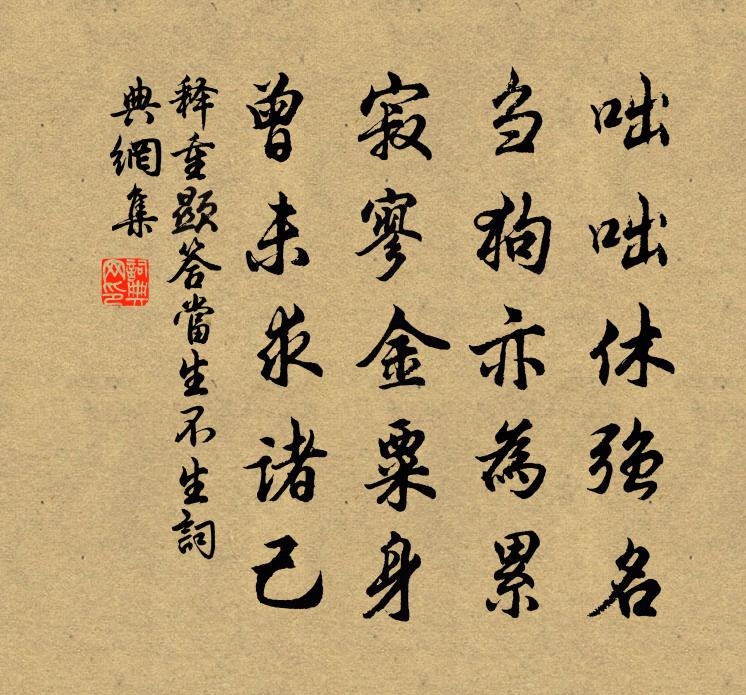 咄咄休強名
芻狗亦為累
寂寥金粟身
曾未求諸己
释重顯答當生不生詞
典網集
詞典
网印